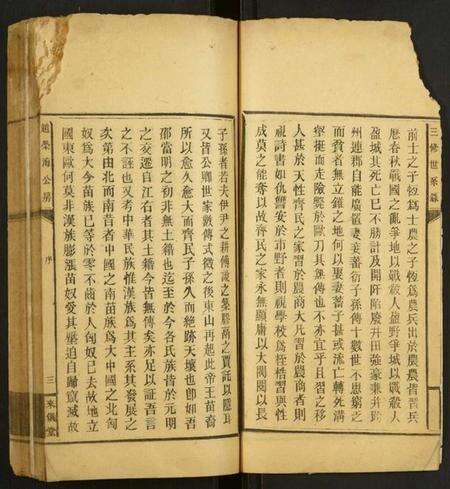 三修世系錄
前士之子恆爲士農之子恆爲農兵出於農農皆習兵
歷春秋戰國之亂爭地以戰殺人盈野爭城以戰殺人
盈城其死亡已不勝計及開阡陌廢井田強豪兼并跨
州連郡自能廣置妻妾蕃衍子孫傳十數世不思窮乏
而貧者無立錐之地何以畢妻蓄子甚或流亡轉死溝
壑挺而走險
人甚於天性齊民之家習於農商大凡習於農商者則
視詩書如仇讐安於市野者則視學校爲桎梏習與性
成莫之能奪以故齊民之家永無顯庸以大閥閱以長
子孫者若夫伊尹之耕傅說之築膠鬲之賈託以應運
又皆公卿世家數傳式微之後東山再起此帝王苗裔
所以愈久愈大而齊民子孫久而絶跡天壤也卽如吾
邵當明之初非無土籍也迄至於今各民族皆於元明
之交遷自江右者其土籍今皆無傳矣亦足以証吾言
之不誣也又考中華民族惟漢族爲其主系其發展之
次第由北而南昔者中國之南苗族爲大中國之北匈
奴爲大今苗族已等於零不齒於人匈奴已去故地立
國東歐何莫非漢族膨漲苗奴受其壓迫自歸竄滅故
公房
序
三
來儀堂